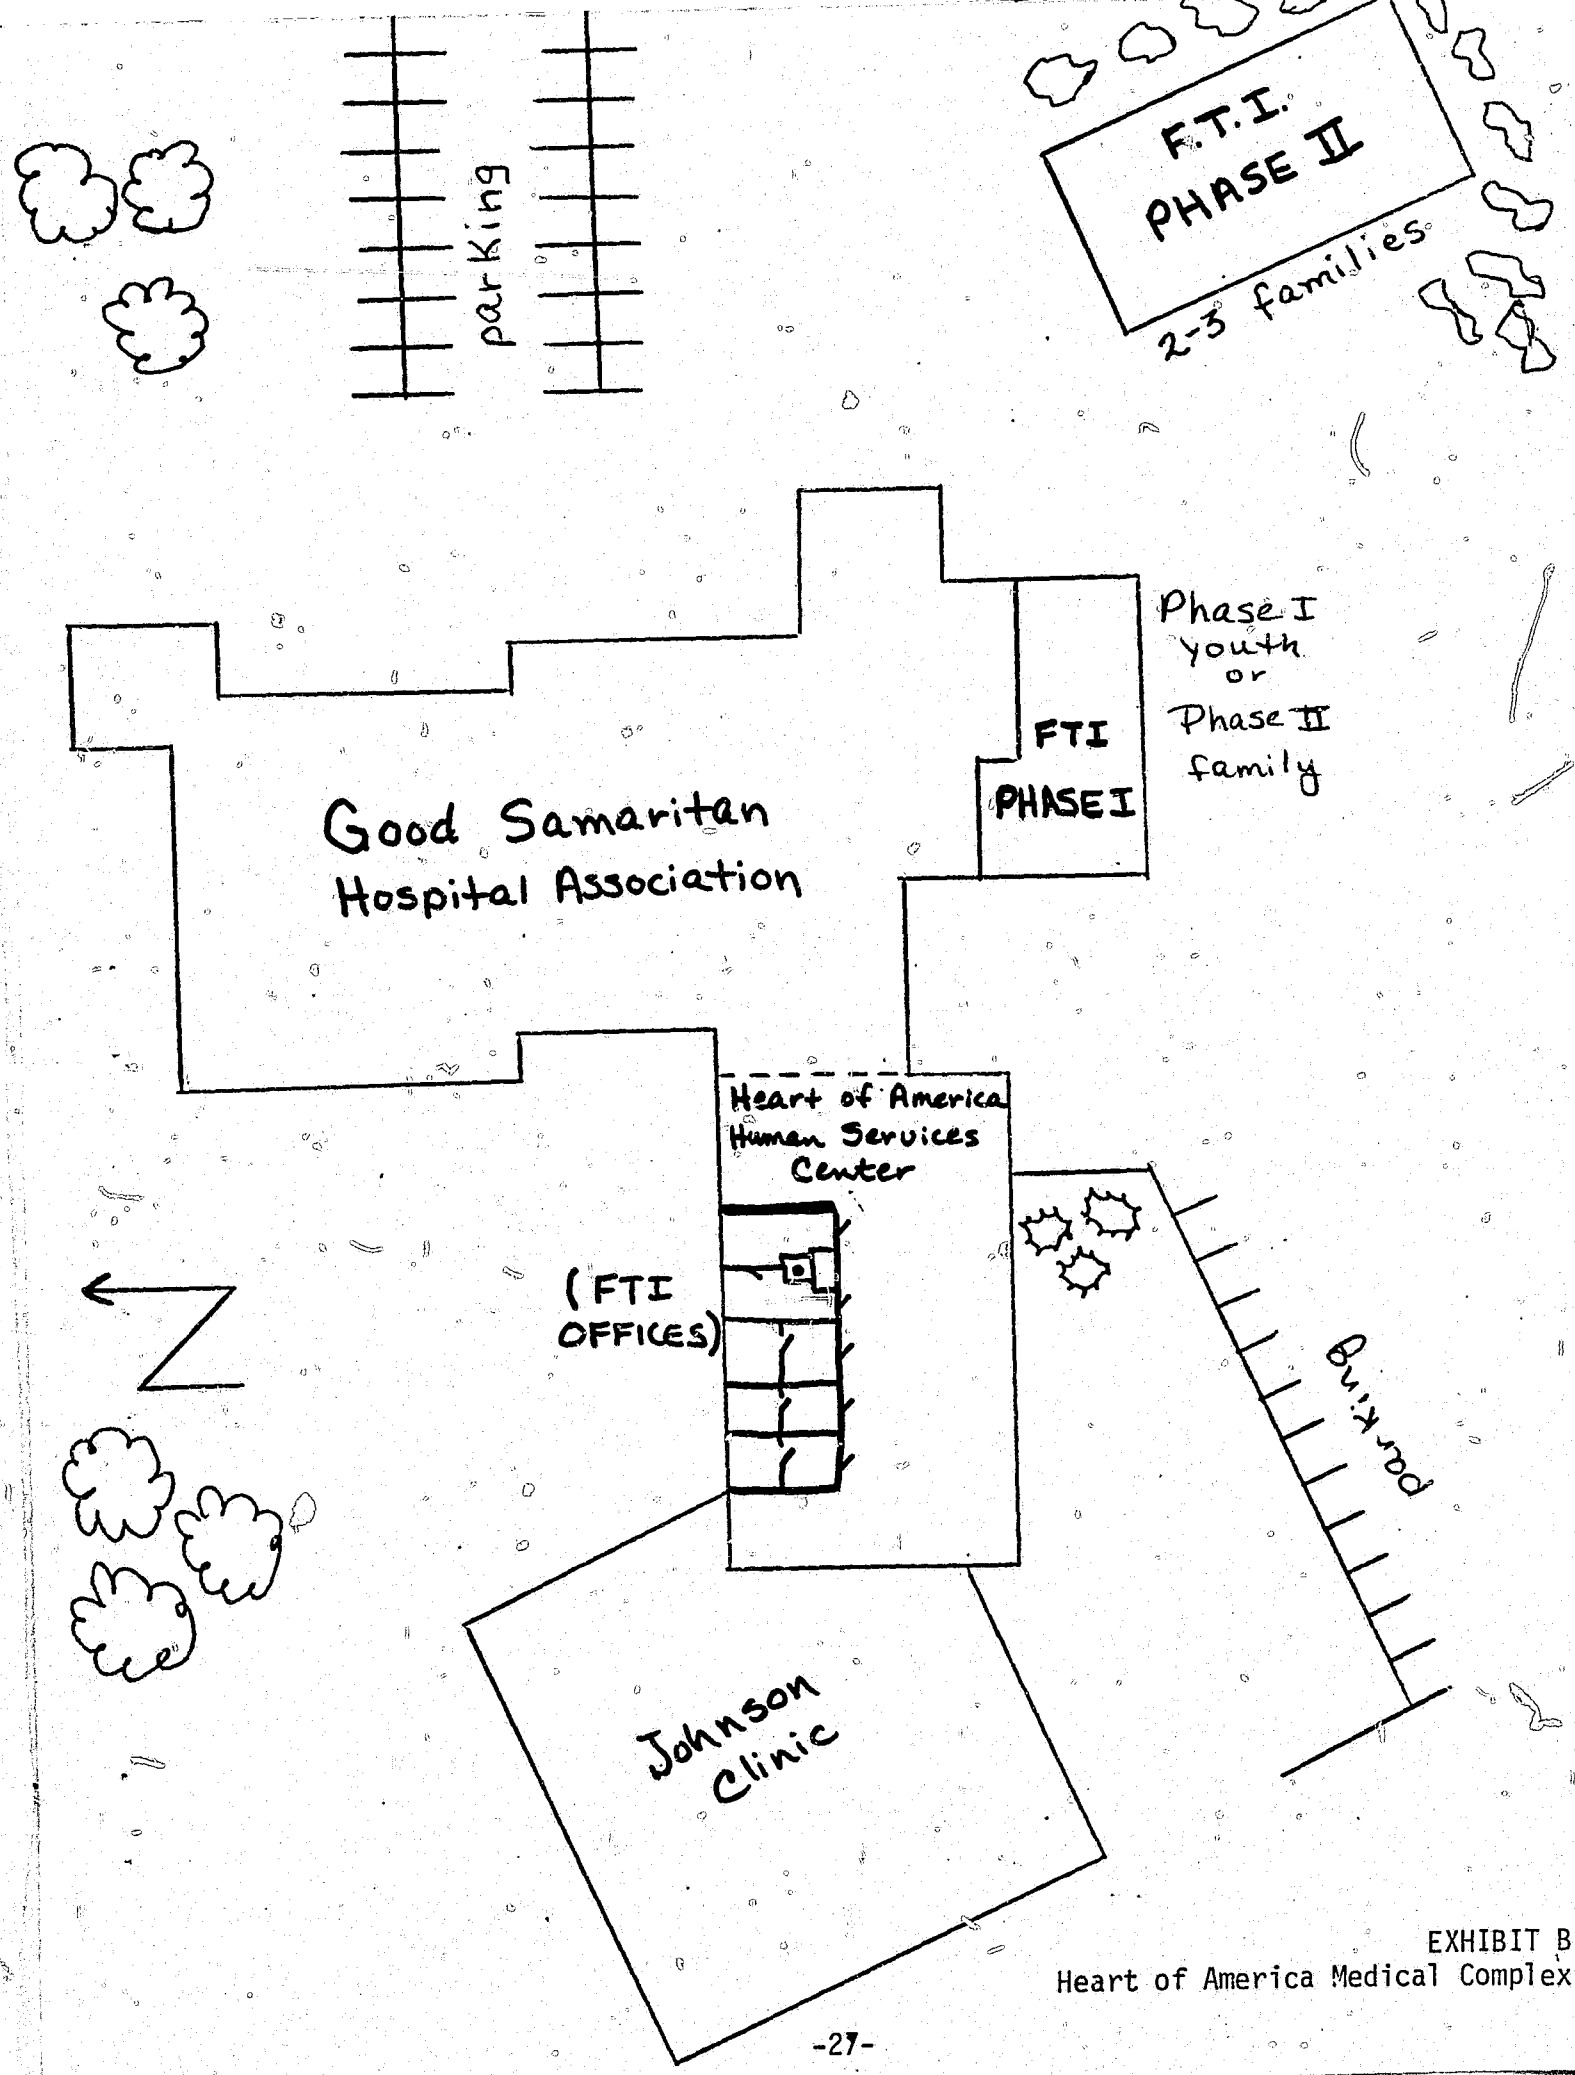 parking
F.T.I.
PHASE II
2-3 families
Phase I
youth
or
Phase II
family
FTI
PHASE I
Good Samaritan
Hospital Association
Heart of America
Human Services
Center
(FTI
OFFICES)
N
parking
Johnson
Clinic
EXHIBIT B
Heart of America Medical Complex
-27-